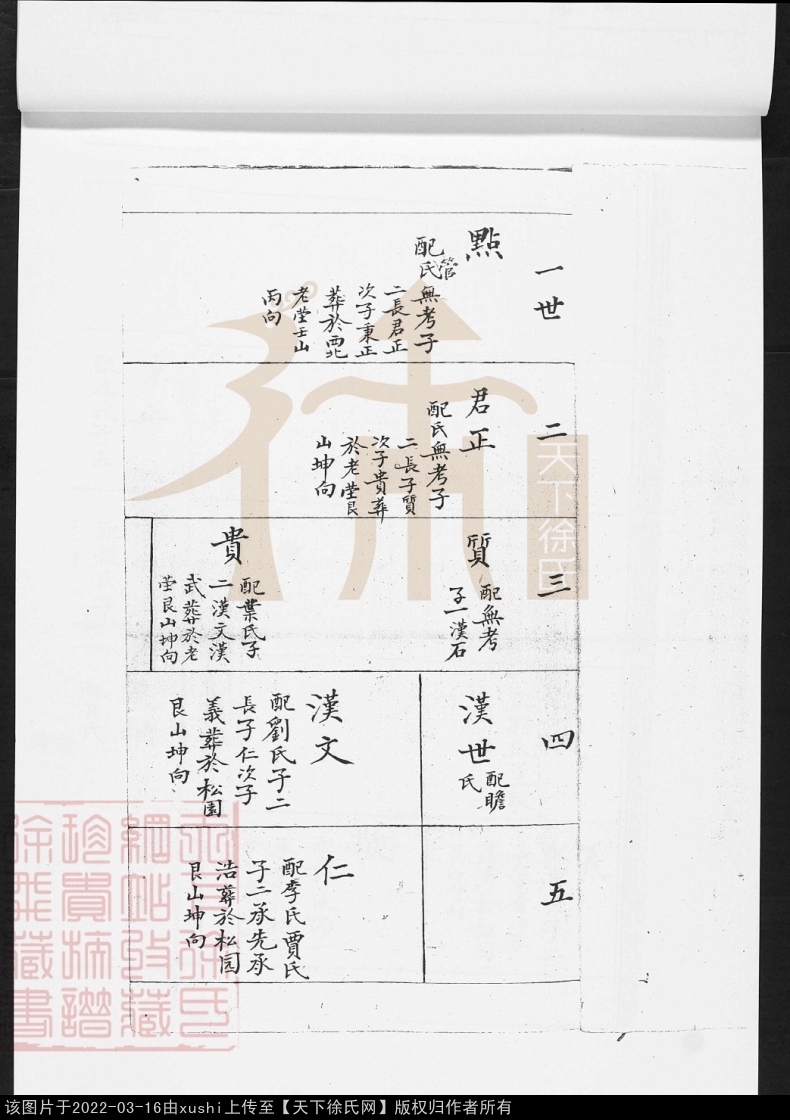 一世
點
配管氏無考子
二長君正
次子秉正
葬於西北
老塋壬山
丙向
二
君正
配氏無考子
二長子質
次子貴葬
於老塋艮
山坤向
三
質
配無考
子一漢石
貴
配葉氏子
二漢文漢
武葬於老
塋艮山坤向
四
漢世
配瞻
氏
漢文
配劉氏子二
長子仁次子
義葬於松園
艮山坤向
五
仁
配李氏賈氏
子二承先承
浩葬於松园
艮山坤向
天下徐氏
该图片于2022-03-16由xushi上传至【天下徐氏网】版权归作者所有